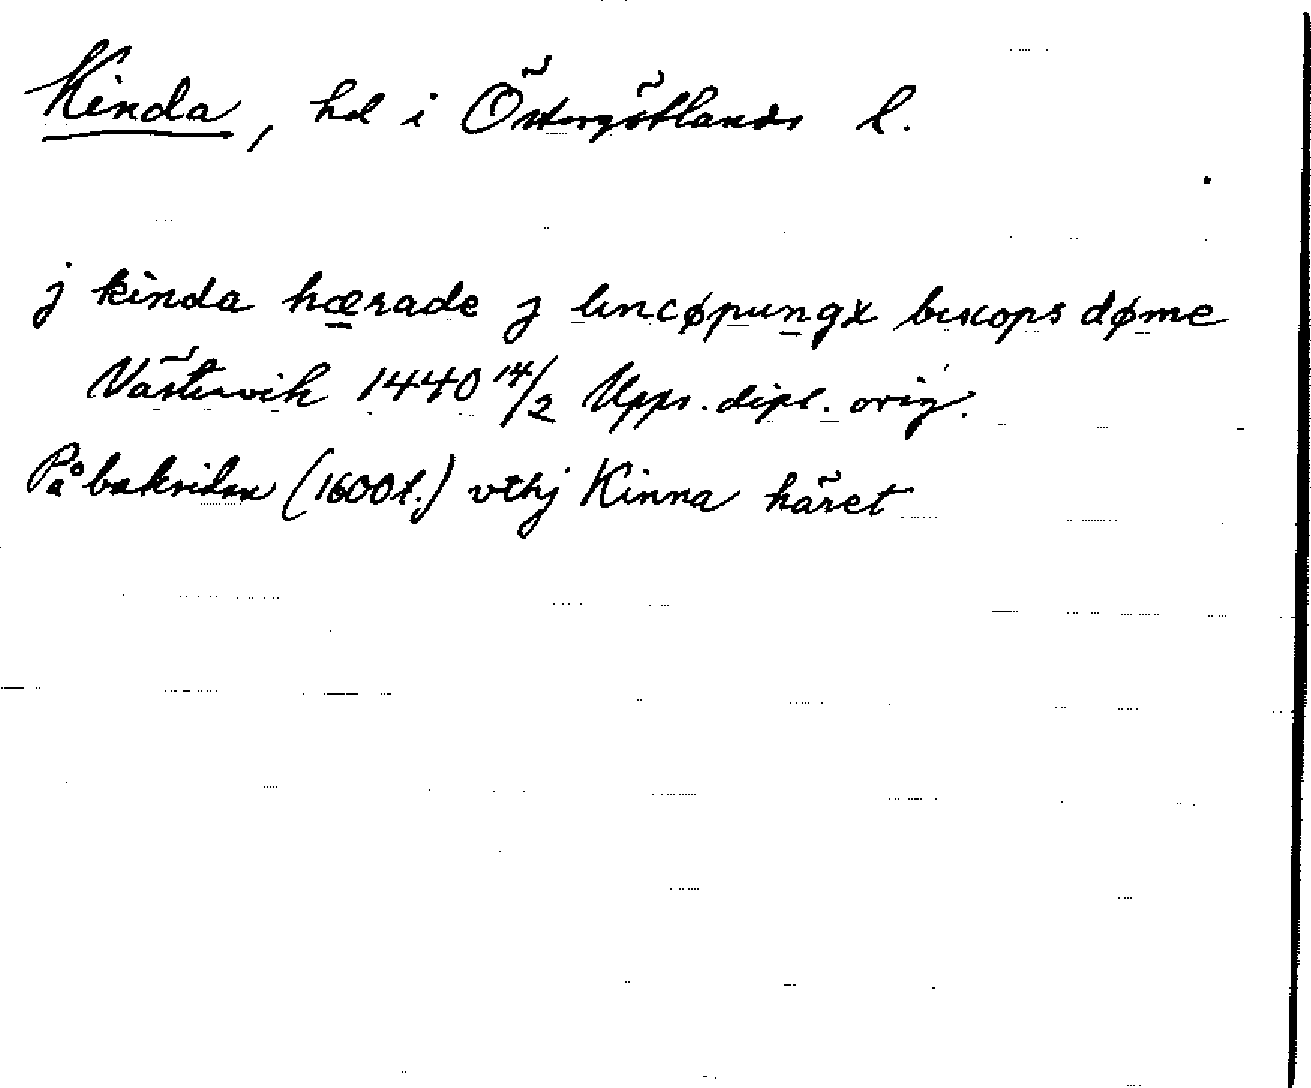 Kinda, hd i Östergötlands l.
j kinda hærade j lincøpungx biscops døme
Västervik 1440 14/2 Upps. dipl. orig.
På baksidan (1600t.) vthj Kinna häret